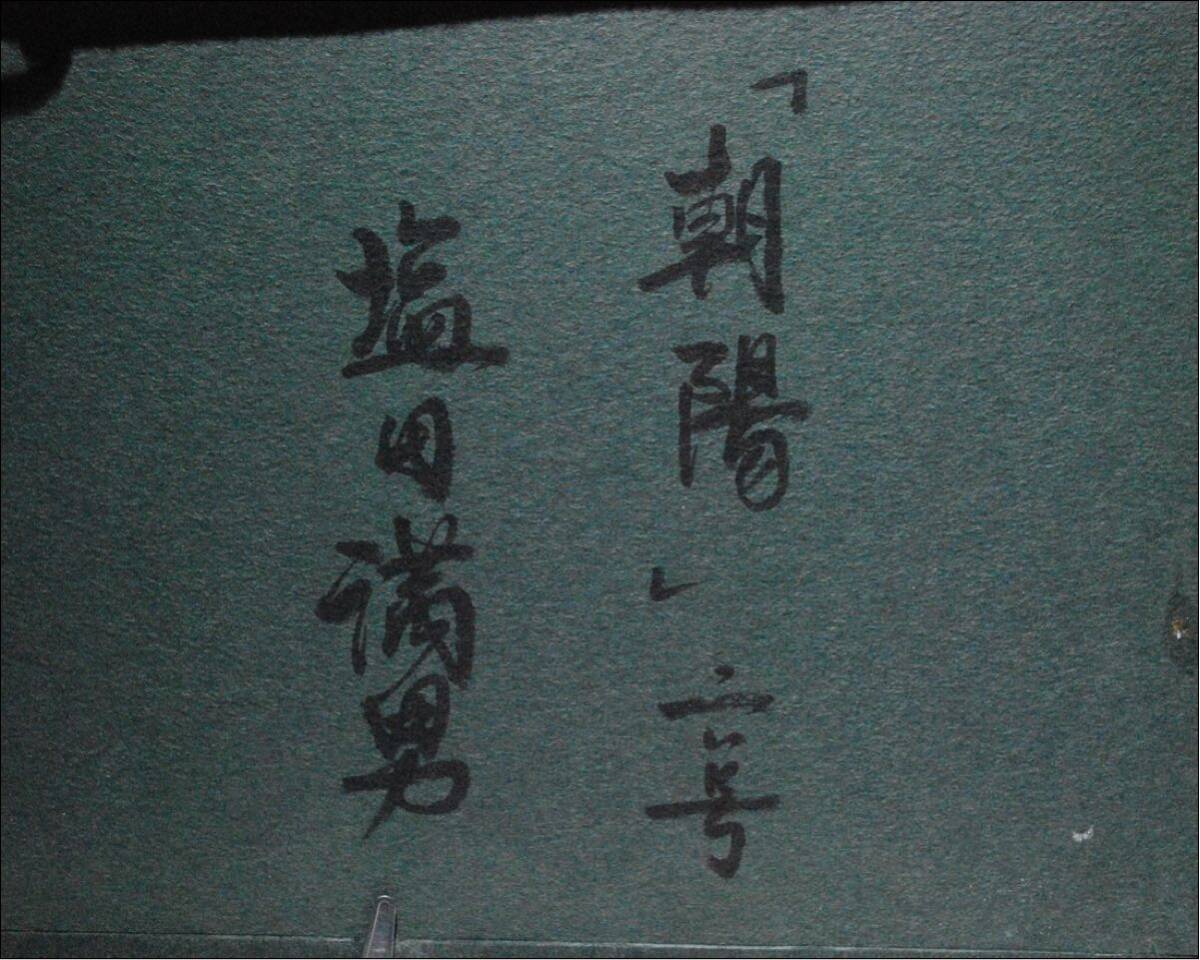 「朝陽」二号
塩田満男